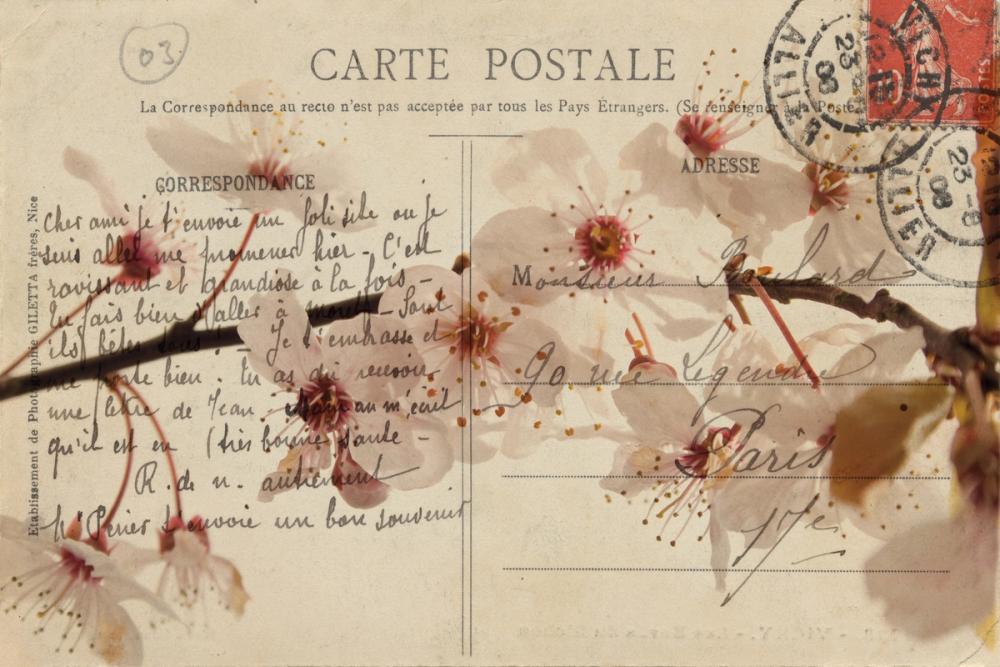 03
CARTE POSTALE
La Correspondance au recto n'est pas acceptée par tous les Pays Étrangers. (Se renseigner à la Poste.
CORRESPONDANCE
ADRESSE
Etablissement de Photographie GILETTA frères, Nice
Cher ami je t'envoie un joli site ou je
suis allée me promener hier - C'est
ravissant et grandiose à la fois -
Tu fais bien d'aller à - Sont
ils bêtes tous ! - Je t'embrasse et
me porte bien. Tu as du recevoir
une lettre de Jean, Maman m'écrit
qu'il est en (très bonne) santé -
R. de n. autrement
t'envoie un bon souvenir
Monsieur Boulard
90 rue Legendre
Paris
17e
VICHY
ALLIER
23 -8
08
POSTES
10
ALLIER
23 -8
08
VICHY